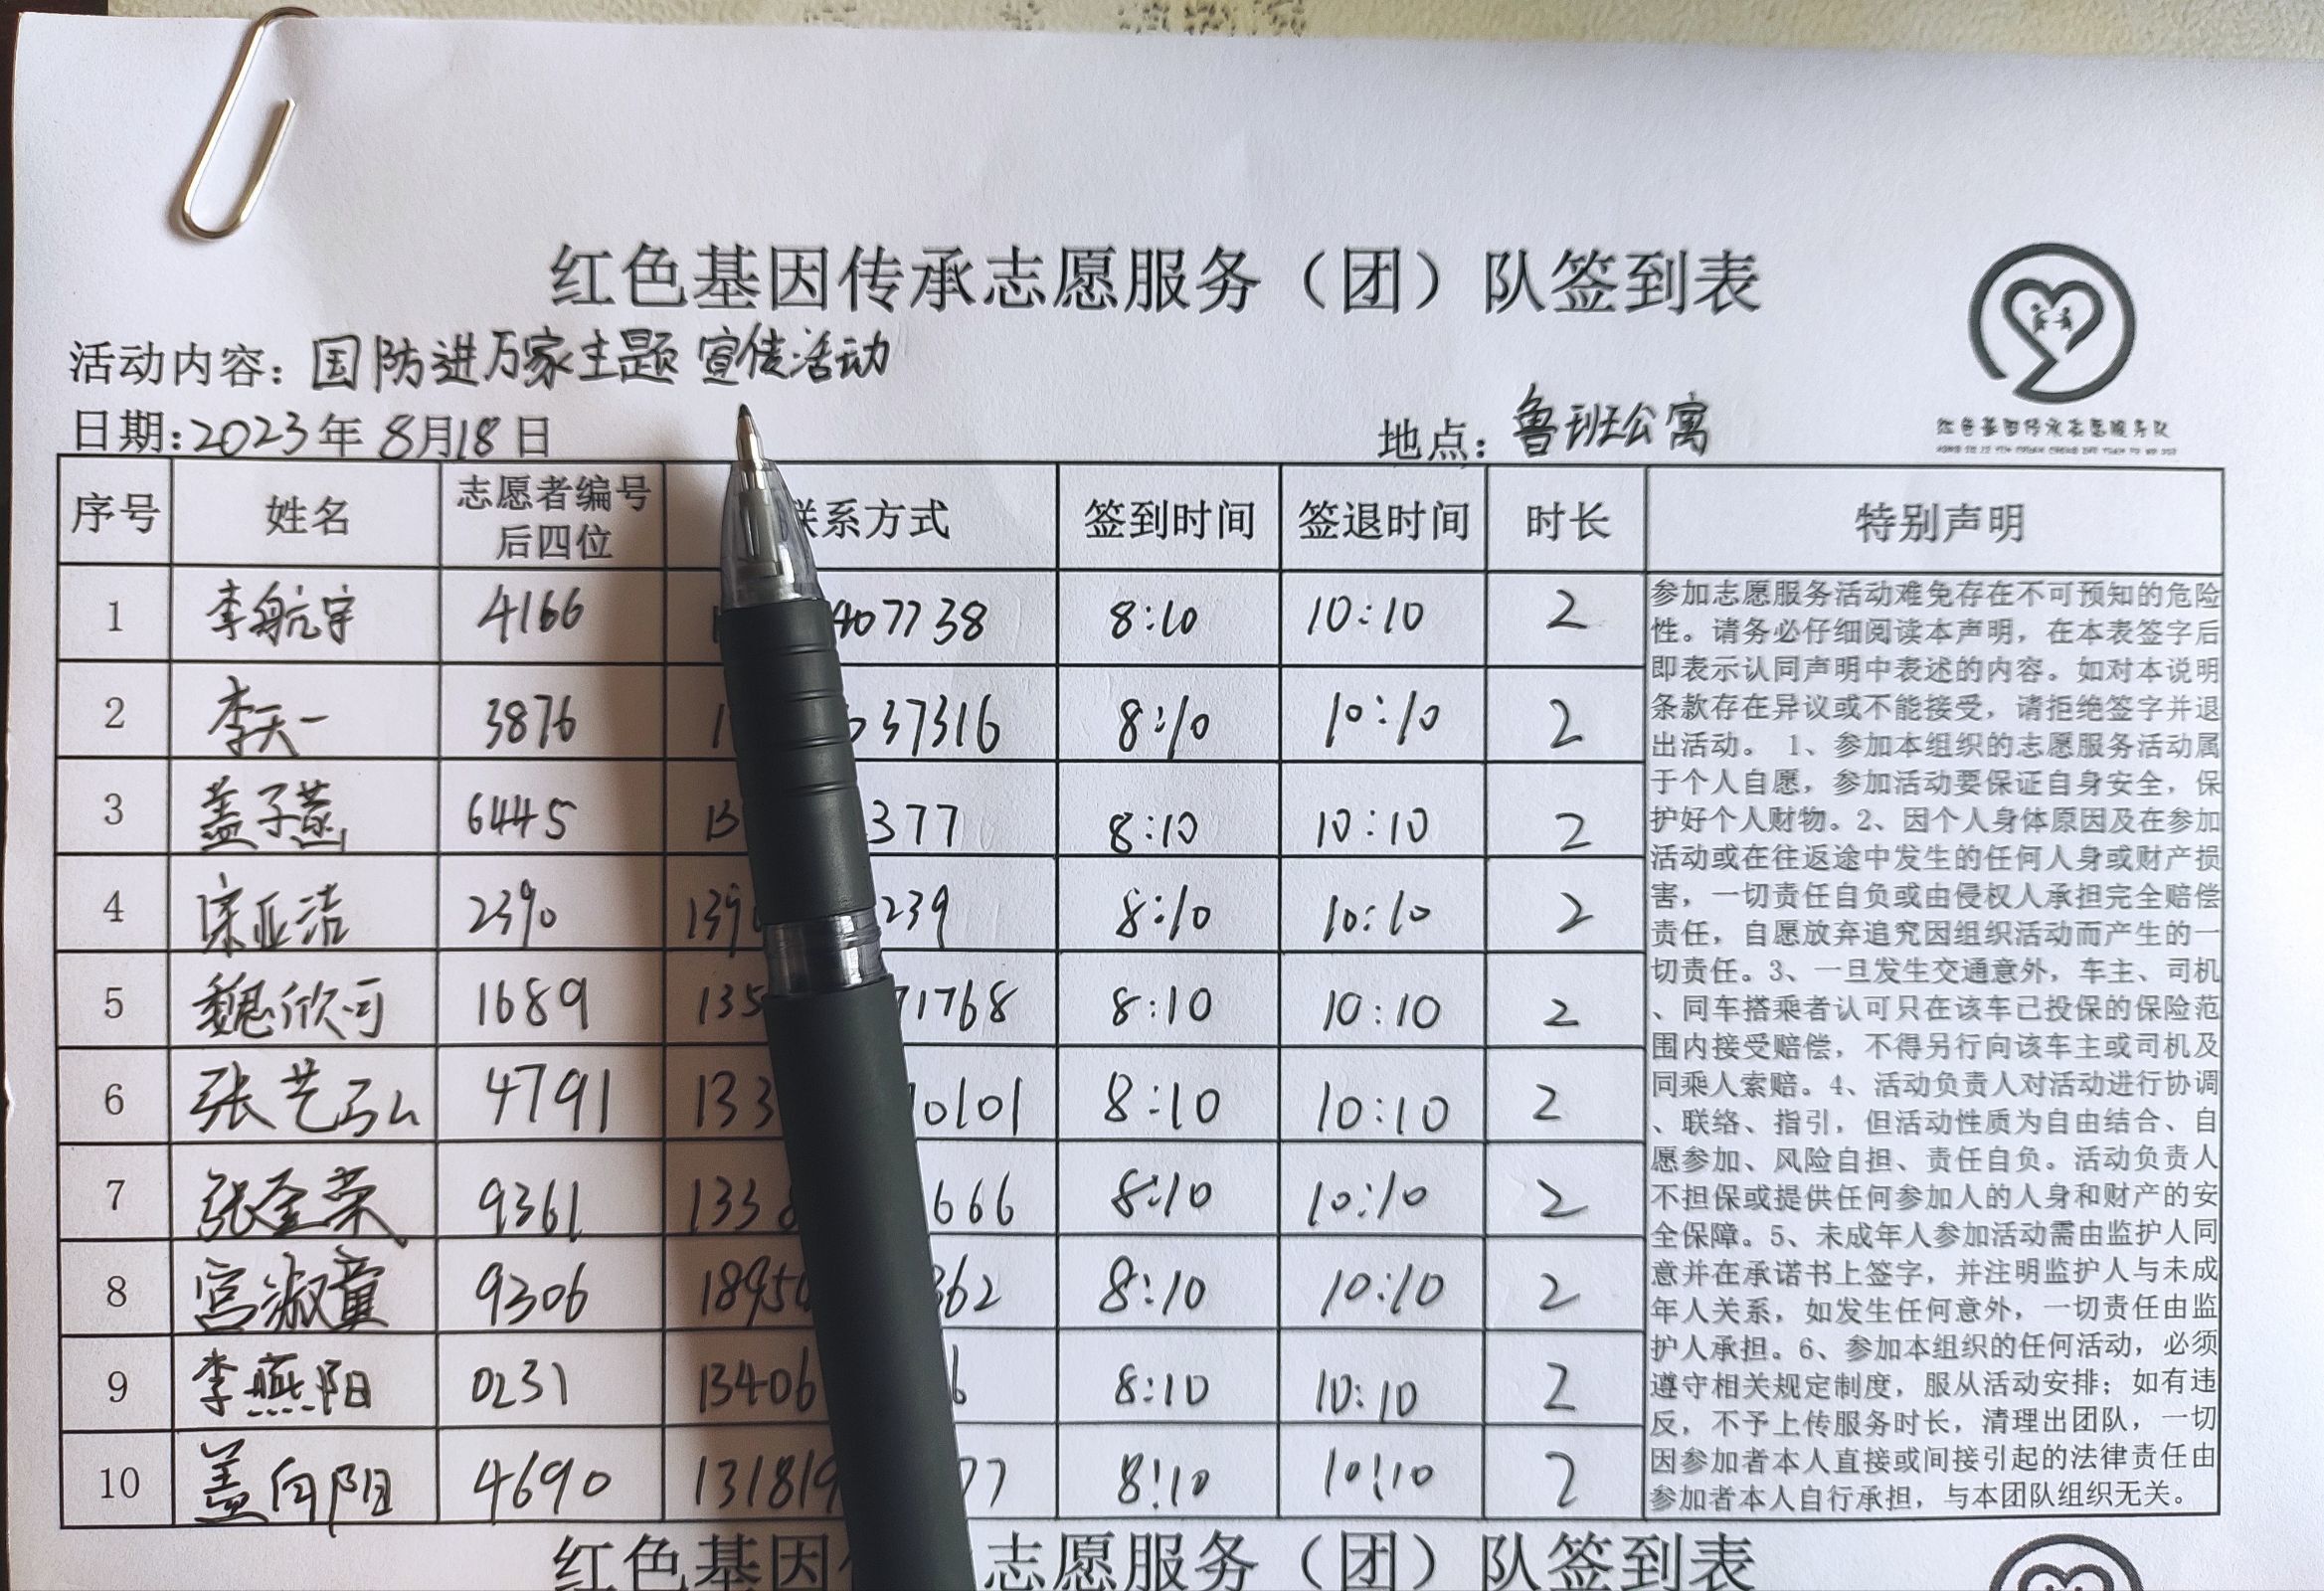 红色基因传承志愿服务（团）队签到表
活动内容：国防进万家主题宣传活动
日期:2023年8月18日 地点：鲁班公寓
红色基因传承志愿服务队
序号 姓名 志愿者编号后四位 联系方式 签到时间 签退时间 时长 特别声明
1 李航宇 4166 407738 8:10 10:10 2
2 李天一 3876 37316 8:10 10:10 2
3 盖子菡 6445 13 377 8:10 10:10 2
4 宋亚洁 2390 139 239 8:10 10:10 2
5 魏欣可 1689 135 71768 8:10 10:10 2
6 张艺弘 4791 133 0101 8:10 10:10 2
7 张金荣 9361 1338 666 8:10 10:10 2
8 宫淑童 9306 1895 362 8:10 10:10 2
9 李燕阳 0231 13406 6 8:10 10:10 2
10 盖向阳 4690 131819 77 8:10 10:10 2
参加志愿服务活动难免存在不可预知的危险
性。请务必仔细阅读本声明，在本表签字后
即表示认同声明中表述的内容。如对本说明
条款存在异议或不能接受，请拒绝签字并退
出活动。 1、参加本组织的志愿服务活动属
于个人自愿，参加活动要保证自身安全，保
护好个人财物。2、因个人身体原因及在参加
活动或在往返途中发生的任何人身或财产损
害，一切责任自负或由侵权人承担完全赔偿
责任，自愿放弃追究因组织活动而产生的一
切责任。3、一旦发生交通意外，车主、司机
、同车搭乘者认可只在该车已投保的保险范
围内接受赔偿，不得另行向该车主或司机及
同乘人索赔。4、活动负责人对活动进行协调
、联络、指引，但活动性质为自由结合、自
愿参加、风险自担、责任自负。活动负责人
不担保或提供任何参加人的人身和财产的安
全保障。5、未成年人参加活动需由监护人同
意并在承诺书上签字，并注明监护人与未成
年人关系，如发生任何意外，一切责任由监
护人承担。6、参加本组织的任何活动，必须
遵守相关规定制度，服从活动安排；如有违
反，不予上传服务时长，清理出团队，一切
因参加者本人直接或间接引起的法律责任由
参加者本人自行承担，与本团队组织无关。
红色基因传 志愿服务（团）队签到表